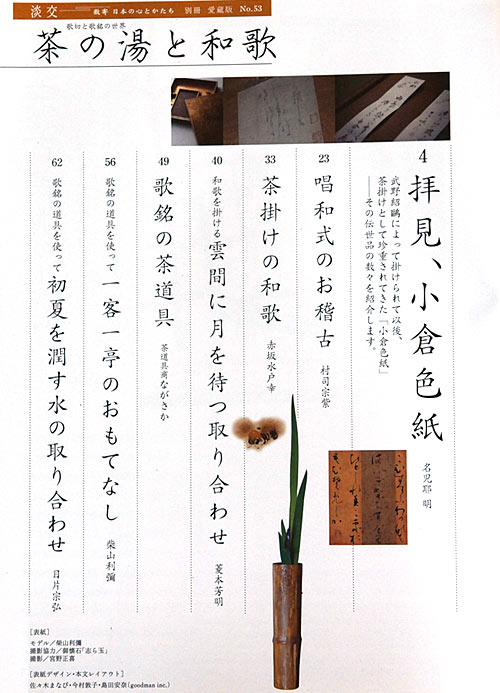 淡交
数寄 日本の心とかたち 別冊 愛蔵版 No.53
歌切と歌銘の世界
茶の湯と和歌
4
拝見、小倉色紙
名児耶 明
武野紹鷗によって掛けられて以後、
茶掛けとして珍重されてきた「小倉色紙」
――その伝世品の数々を紹介します。
23
唱和式のお稽古
村司宗紫
33
茶掛けの和歌
赤坂水戸幸
40
和歌を掛ける 雲間に月を待つ取り合わせ
菱本芳明
49
歌銘の茶道具
茶道具商ながさか
56
歌銘の道具を使って 一客一亭のおもてなし
柴山利彌
62
歌銘の道具を使って 初夏を潤す水の取り合わせ
目片宗弘
[表紙]
モデル/柴山利彌
撮影協力/御懐石「志ら玉」
撮影/宮野正喜
[表紙デザイン・本文レイアウト]
佐々木まなび・今村敦子・島田安奈(goodman inc.)